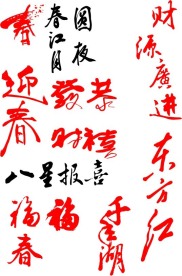 春
春江月
圆夜
迎春
發
恭
財
禧
八星报喜
福
福
春
千玉湖
财源廣进
东方红